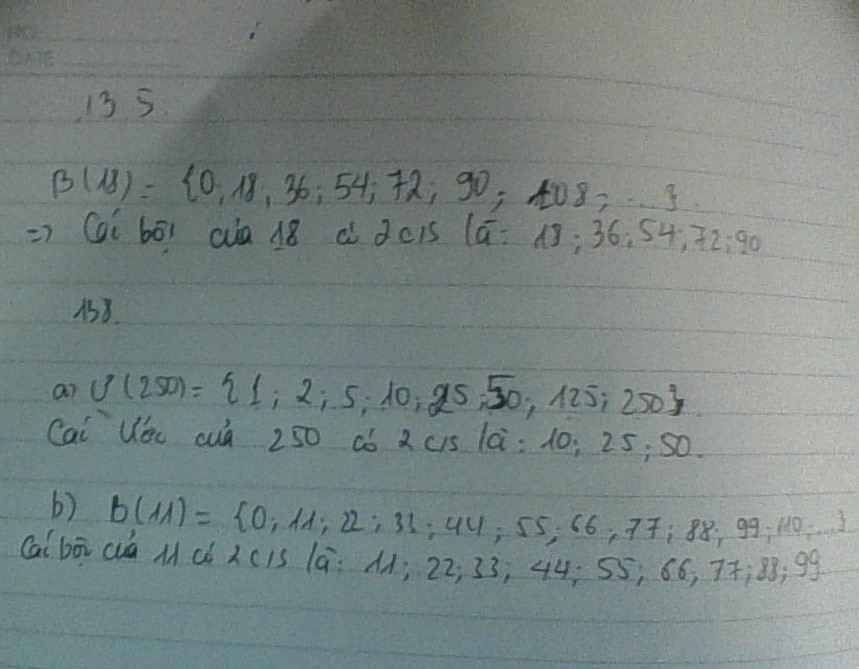 NO.
DATE
135.
B(18) = {0; 18, 36; 54; 72; 90; 108; ...}.
=> Các bội của 18 có 2 c/s là: 18; 36; 54; 72; 90
138.
a) Ư(250) = {1; 2; 5; 10; 25; 50; 125; 250}.
Các ước của 250 có 2 c/s là: 10; 25; 50.
b) B(11) = {0; 11; 22; 33; 44; 55; 66; 77; 88; 99; 110; ...}
Các bội của 11 có 2 c/s là: 11; 22; 33; 44; 55; 66; 77; 88; 99